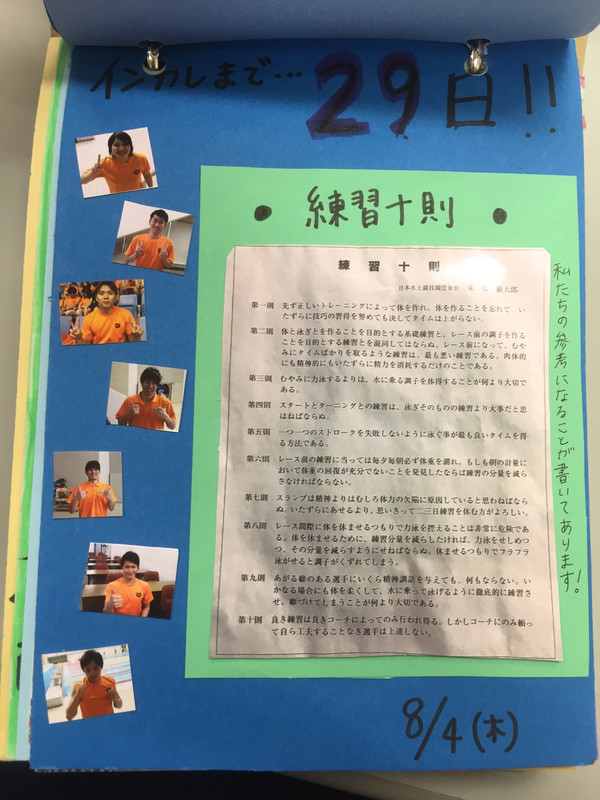 インカレまで… 29日!!
● 練習十則 ●
練習十則
日本水上競技聯盟会長 末 太郎
第一則 先ず正しいトレーニングによって体を作れ。体を作ることを忘れて、い
たずらに技巧の習得を努めても決してタイムは上がらない。
第二則 体と泳ぎとを作ることを目的とする基礎練習と、レース前の調子を作る
ことを目的とする練習とを混同してはならぬ。レース前になって、むや
みにタイムばかりを取るような練習は、最も悪い練習である。肉体的
にも精神的にもいたずらに精力を消耗するだけのことである。
第三則 むやみに力泳するよりは、水に乗る調子を体得することが何より大切で
ある。
第四則 スタートとターニングとの練習は、泳ぎそのものの練習より大事だと思
はねばならぬ。
第五則 一つ一つのストロークを失敗しないように泳ぐ事が最も良いタイムを得
る方法である。
第六則 レース前の練習に当っては毎夕毎朝必ず体重を測れ。もしも朝の計量に
おいて体重の回復が充分でないことを発見したならば練習の分量を減ら
さなければならない。
第七則 スランプは精神よりはむしろ体力の欠陥に原因していると思わねばなら
ぬ。いたずらにあせるより、思いきって二三日練習を休む方がよろしい。
第八則 レース間際に体を休ませるつもりで力泳を控えることは非常に危険であ
る。体を休ませるために、練習分量を減らしたければ、力泳をせしめつ
つ、その分量を減らすようにせねばならぬ。休ませるつもりでフラフラ
泳がせると調子がくずれてしまう。
第九則 あがる癖のある選手にいくら精神講話を与えても、何もならない。い
かなる場合にも体を柔くして、水に乗って泳げるように徹底的に練習さ
せ、癖づけてしまうことが何より大切である。
第十則 良き練習は良きコーチによってのみ行われ得る。しかしコーチにのみ頼っ
て自ら工夫することなき選手は上達しない。
私たちの参考になることが書いてあります!
8/4(木)